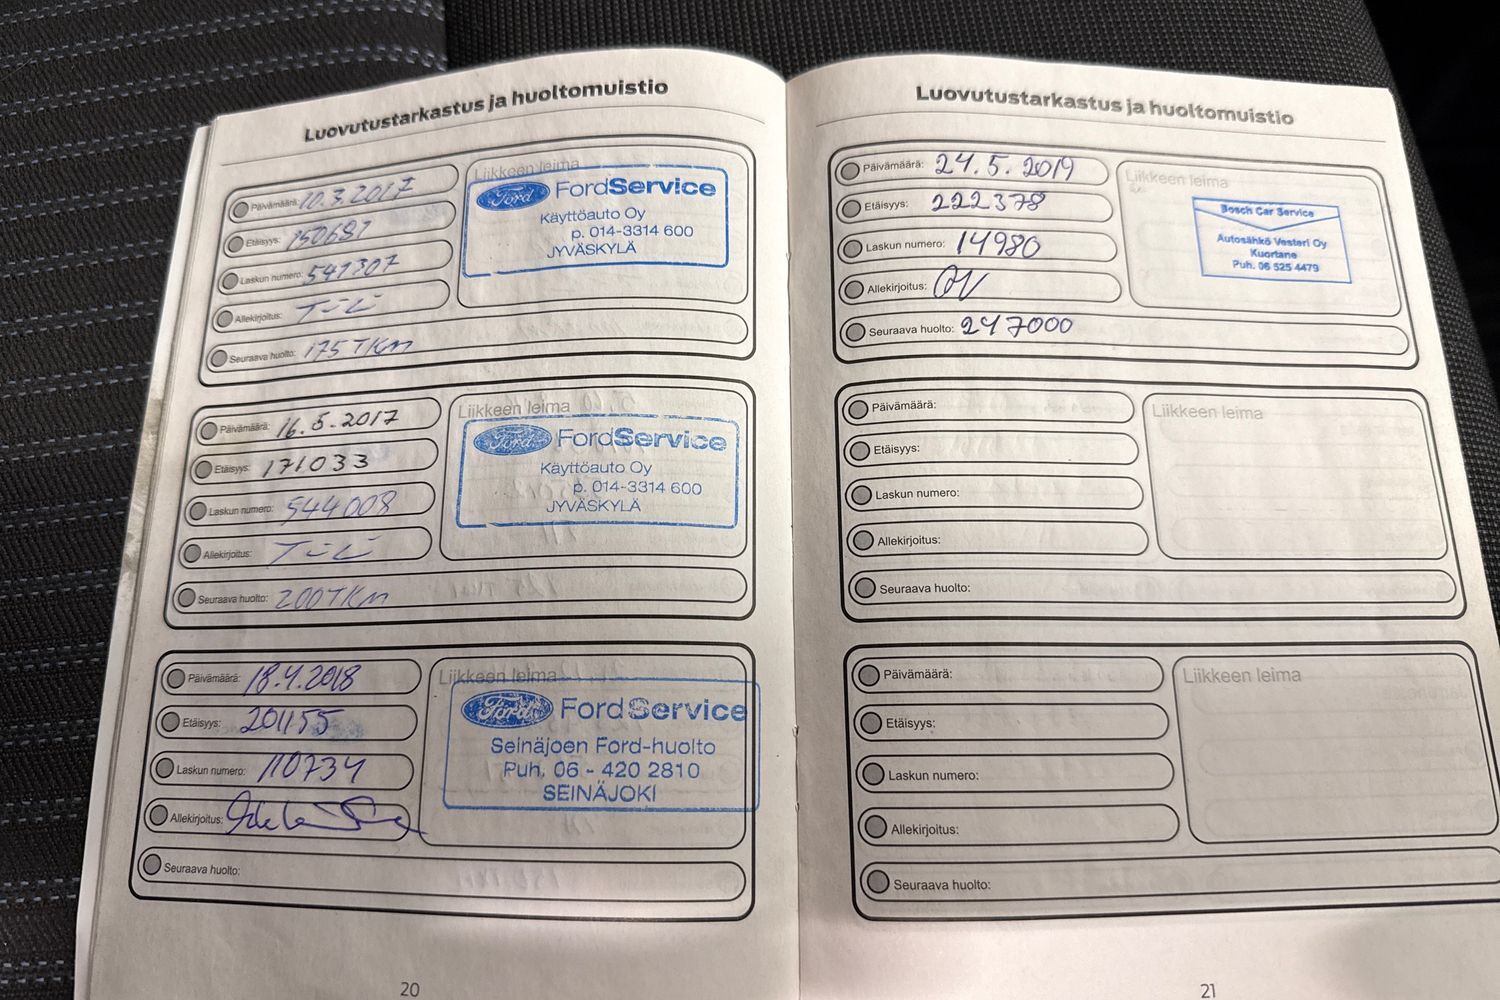 Luovutustarkastus ja huoltomuistio
Päivämäärä: 10.3.2017
Etäisyys: 150687
Laskun numero: 541307
Allekirjoitus:
Seuraava huolto: 175 TKM
Liikkeen leima
Ford FordService
Käyttöauto Oy
p. 014-3314 600
JYVÄSKYLÄ
Päivämäärä: 16.5.2017
Etäisyys: 171033
Laskun numero: 544008
Allekirjoitus:
Seuraava huolto: 200 TKM
Liikkeen leima
Ford FordService
Käyttöauto Oy
p. 014-3314 600
JYVÄSKYLÄ
Päivämäärä: 18.4.2018
Etäisyys: 201155
Laskun numero: 110734
Allekirjoitus:
Seuraava huolto:
Liikkeen leima
Ford FordService
Seinäjoen Ford-huolto
Puh. 06 - 420 2810
SEINÄJOKI
20
Luovutustarkastus ja huoltomuistio
Päivämäärä: 24.5.2019
Etäisyys: 222378
Laskun numero: 14980
Allekirjoitus:
Seuraava huolto: 247000
Liikkeen leima
Bosch Car Service
Autosähkö Vesteri Oy
Kuortane
Puh. 06 525 4479
Päivämäärä:
Etäisyys:
Laskun numero:
Allekirjoitus:
Seuraava huolto:
Liikkeen leima
Päivämäärä:
Etäisyys:
Laskun numero:
Allekirjoitus:
Seuraava huolto:
Liikkeen leima
21